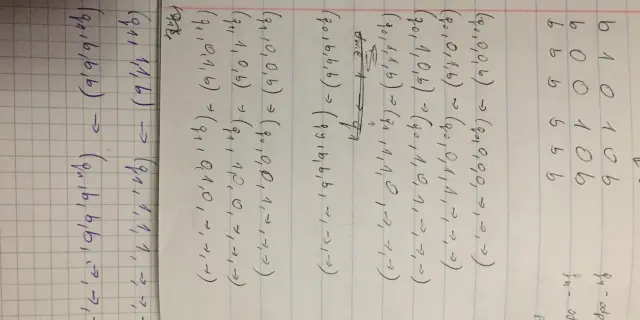 b 1 0 1 0 b
b 0 0 1 0 b
b b b b b b
(q0,0,0,b) → (q0,0,0,0,→,→,→)
(q0,0,1,b) → (q0,0,1,1,→,→,→)
(q0,1,0,b) → (q0,1,0,1,→,→,→)
(q0,1,1,b) → (q1,1,1,0,→,→,→)
(q0,b,b,b) → b,b,b,→,→,→)
(q1,0,0,b) → (q0,0,0,1,→,→,→)
(q1,1,0,b) → (q1,1,0,0,→,→,→)
(q1,0,1,b) → (q1,0,1,0,→,→,→)
(q1,1,1,b) → (q1,1,1,1,→,→,
(q1,b,b,b) → b,b,b,→,→,